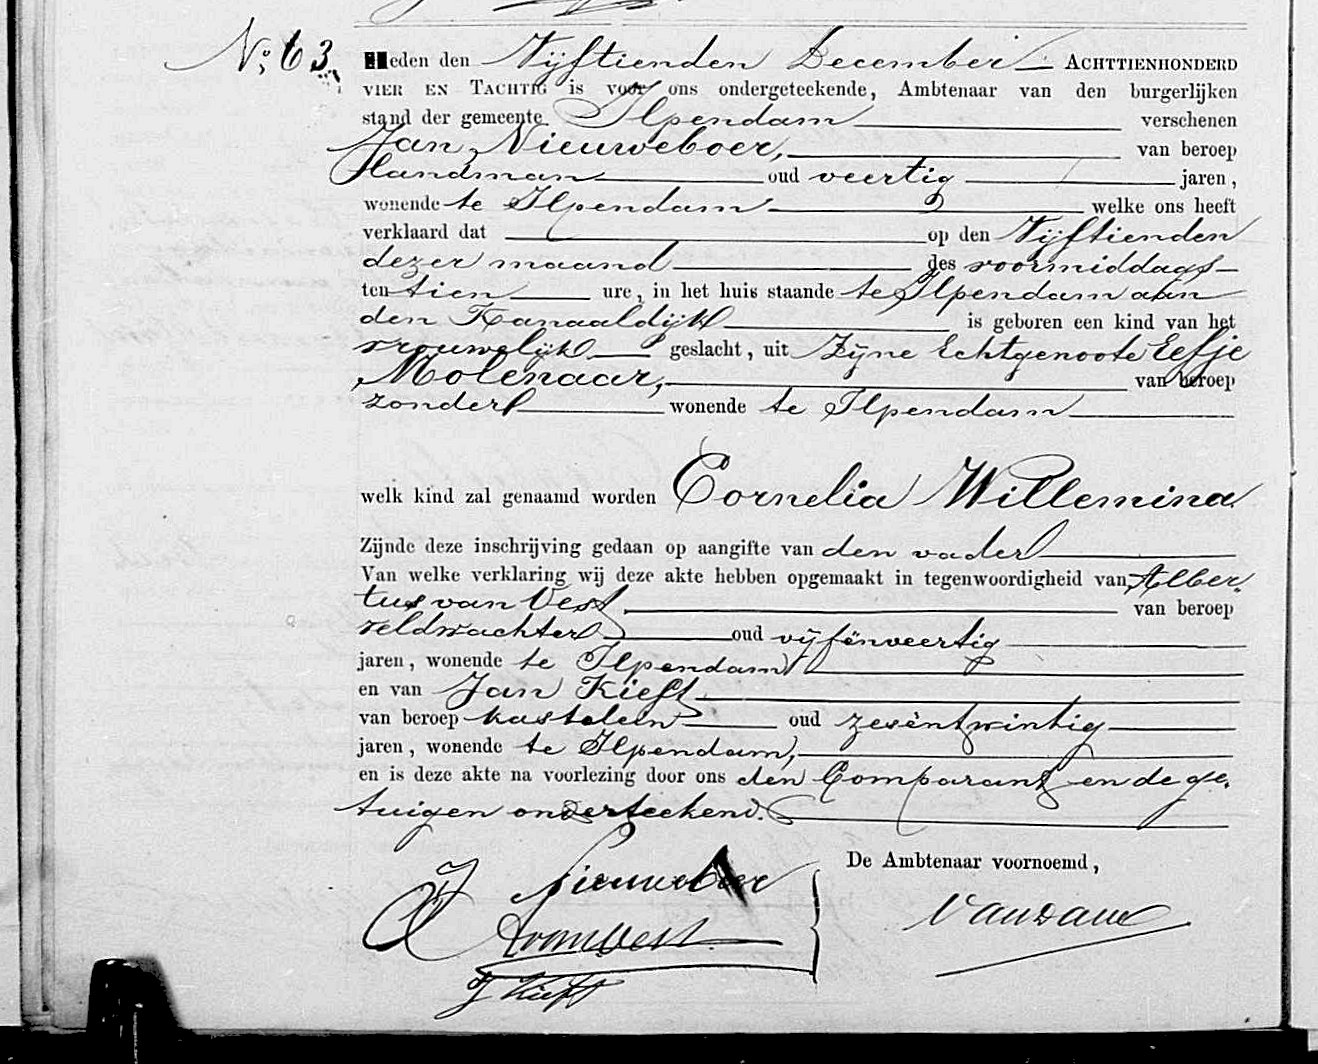 No. 63.
Heden den Vijftienden December ACHTTIENHONDERD
VIER EN TACHTIG is voor ons ondergeteekende, Ambtenaar van den burgerlijken
stand der gemeente Ilpendam verschenen
Jan Nieuweboer, van beroep
Landman oud veertig jaren,
wonende te Ilpendam welke ons heeft
verklaard dat op den Vijftienden
dezer maand des voormiddags
ten tien ure, in het huis staande te Ilpendam aan
den Kanaaldijk is geboren een kind van het
vrouwelijk geslacht, uit Zijne Echtgenoote Eefje
Molenaar, van beroep
zonder wonende te Ilpendam
welk kind zal genaamd worden Cornelia Willemina
Zijnde deze inschrijving gedaan op aangifte van den vader
Van welke verklaring wij deze akte hebben opgemaakt in tegenwoordigheid van Alber-
tus van Vest van beroep
veldwachter oud vijfënveertig
jaren, wonende te Ilpendam
en van Jan Kieft
van beroep kastelein oud zesëntwintig
jaren, wonende te Ilpendam,
en is deze akte na voorlezing door ons den Comparant en de ge-
tuigen onderteekend.
De Ambtenaar voornoemd,
J Nieuweboer
A van Vest
VanDam
J Kieft